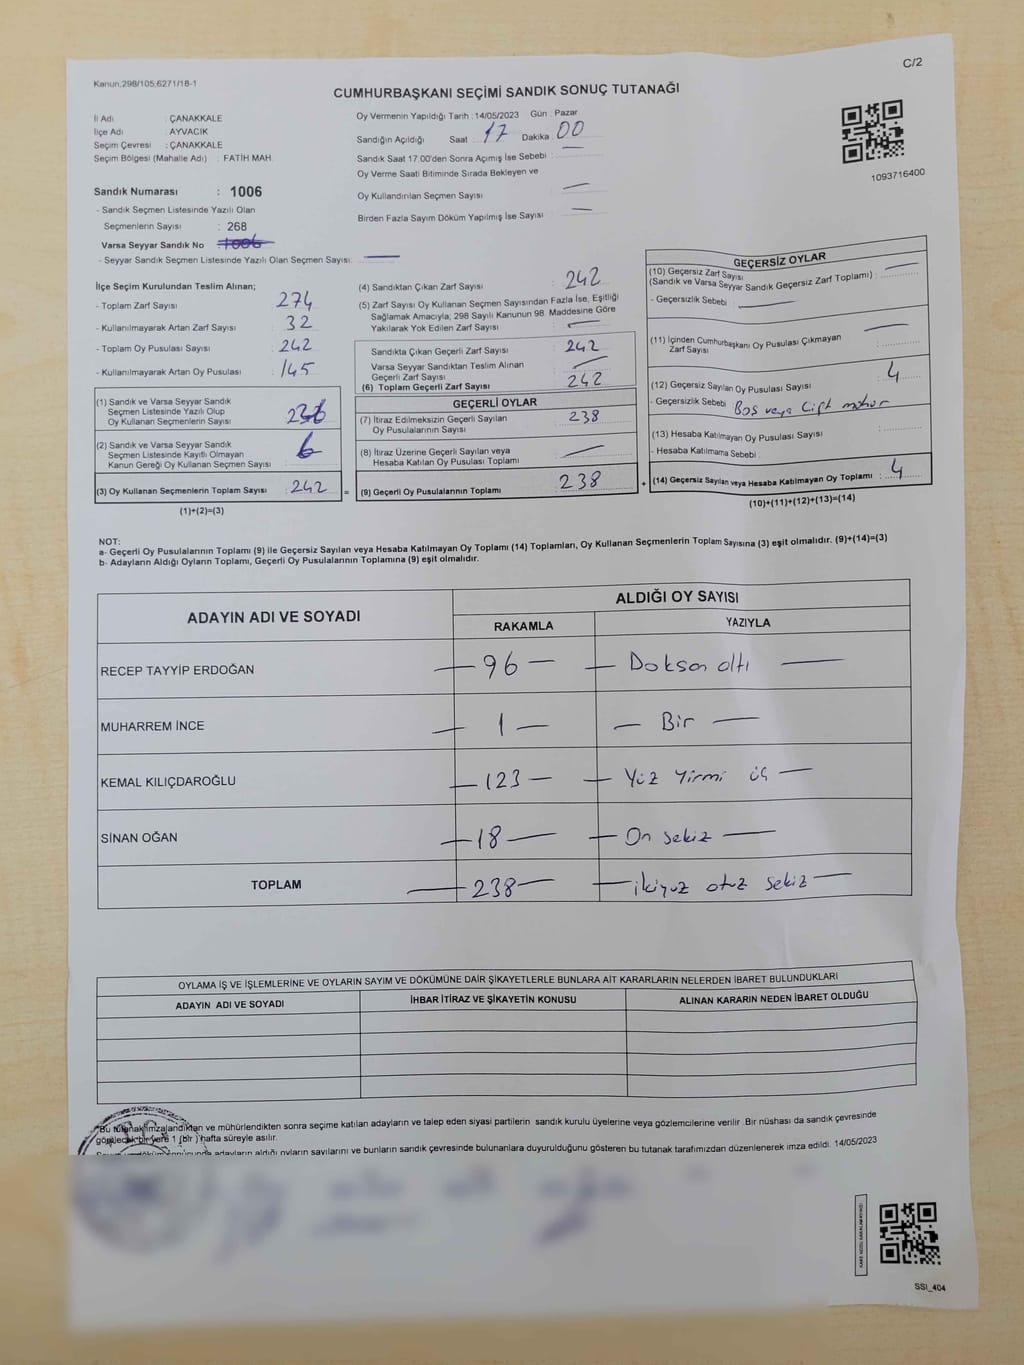 C/2
Kanun;298/105;6271/18-1
CUMHURBAŞKANI SEÇİMİ SANDIK SONUÇ TUTANAĞI
İl Adı : ÇANAKKALE
İlçe Adı : AYVACIK
Seçim Çevresi : ÇANAKKALE
Seçim Bölgesi (Mahalle Adı) : FATİH MAH.
Sandık Numarası : 1006
- Sandık Seçmen Listesinde Yazılı Olan
Seçmenlerin Sayısı : 268
Varsa Seyyar Sandık No : 1006
- Seyyar Sandık Seçmen Listesinde Yazılı Olan Seçmen Sayısı:
Oy Vermenin Yapıldığı Tarih : 14/05/2023 Gün : Pazar
Sandığın Açıldığı Saat : 17 Dakika : 00
Sandık Saat 17.00'den Sonra Açımış İse Sebebi :
Oy Verme Saati Bitiminde Sırada Bekleyen ve
Oy Kullandırılan Seçmen Sayısı :
Birden Fazla Sayım Döküm Yapılmış İse Sayısı :
1093716400
İlçe Seçim Kurulundan Teslim Alınan;
- Toplam Zarf Sayısı : 274
- Kullanılmayarak Artan Zarf Sayısı : 32
- Toplam Oy Pusulası Sayısı : 242
- Kullanılmayarak Artan Oy Pusulası : 145
(1) Sandık ve Varsa Seyyar Sandık
Seçmen Listesinde Yazılı Olup
Oy Kullanan Seçmenlerin Sayısı : 236
(2) Sandık ve Varsa Seyyar Sandık
Seçmen Listesinde Kayıtlı Olmayan
Kanun Gereği Oy Kullanan Seçmen Sayısı : 6
(3) Oy Kullanan Seçmenlerin Toplam Sayısı : 242 =
(1)+(2)=(3)
(4) Sandıktan Çıkan Zarf Sayısı : 242
(5) Zarf Sayısı Oy Kullanan Seçmen Sayısından Fazla İse, Eşitliği
Sağlamak Amacıyla; 298 Sayılı Kanunun 98. Maddesine Göre
Yakılarak Yok Edilen Zarf Sayısı :
Sandıkta Çıkan Geçerli Zarf Sayısı : 242
Varsa Seyyar Sandıktan Teslim Alınan
Geçerli Zarf Sayısı :
(6) Toplam Geçerli Zarf Sayısı : 242
GEÇERLİ OYLAR
(7) İtiraz Edilmeksizin Geçerli Sayılan
Oy Pusulalarının Sayısı : 238
(8) İtiraz Üzerine Geçerli Sayılan veya
Hesaba Katılan Oy Pusulası Toplamı :
(9) Geçerli Oy Pusulalarının Toplamı : 238 +
GEÇERSİZ OYLAR
(10) Geçersiz Zarf Sayısı
(Sandık ve Varsa Seyyar Sandık Geçersiz Zarf Toplamı) :
- Geçersizlik Sebebi :
(11) İçinden Cumhurbaşkanı Oy Pusulası Çıkmayan
Zarf Sayısı :
(12) Geçersiz Sayılan Oy Pusulası Sayısı : 4
- Geçersizlik Sebebi : Boş veya Çift mühür
(13) Hesaba Katılmayan Oy Pusulası Sayısı :
- Hesaba Katılmama Sebebi :
(14) Geçersiz Sayılan veya Hesaba Katılmayan Oy Toplamı : 4
(10)+(11)+(12)+(13)=(14)
NOT:
a- Geçerli Oy Pusulalarının Toplamı (9) ile Geçersiz Sayılan veya Hesaba Katılmayan Oy Toplamı (14) Toplamları, Oy Kullanan Seçmenlerin Toplam Sayısına (3) eşit olmalıdır. (9)+(14)=(3)
b- Adayların Aldığı Oyların Toplamı, Geçerli Oy Pusulalarının Toplamına (9) eşit olmalıdır.
ADAYIN ADI VE SOYADI
ALDIĞI OY SAYISI
RAKAMLA YAZIYLA
RECEP TAYYİP ERDOĞAN 96 Doksan altı
MUHARREM İNCE 1 Bir
KEMAL KILIÇDAROĞLU 123 Yüz Yirmi üç
SİNAN OĞAN 18 On sekiz
TOPLAM 238 ikiyüz otuz sekiz
OYLAMA İŞ VE İŞLEMLERİNE VE OYLARIN SAYIM VE DÖKÜMÜNE DAİR ŞİKAYETLERLE BUNLARA AİT KARARLARIN NELERDEN İBARET BULUNDUKLARI
ADAYIN ADI VE SOYADI İHBAR İTİRAZ VE ŞİKAYETİN KONUSU ALINAN KARARIN NEDEN İBARET OLDUĞU
"Bu tutanak imzalandıktan ve mühürlendikten sonra seçime katılan adayların ve talep eden siyasi partilerin sandık kurulu üyelerine veya gözlemcilerine verilir. Bir nüshası da sandık çevresinde
görülecek bir yere 1 (bir ) hafta süreyle asılır.
adayların aldığı oyların sayılarını ve bunların sandık çevresinde bulunanlara duyurulduğunu gösteren bu tutanak tarafımızdan düzenlenerek imza edildi. 14/05/2023
SSI_404